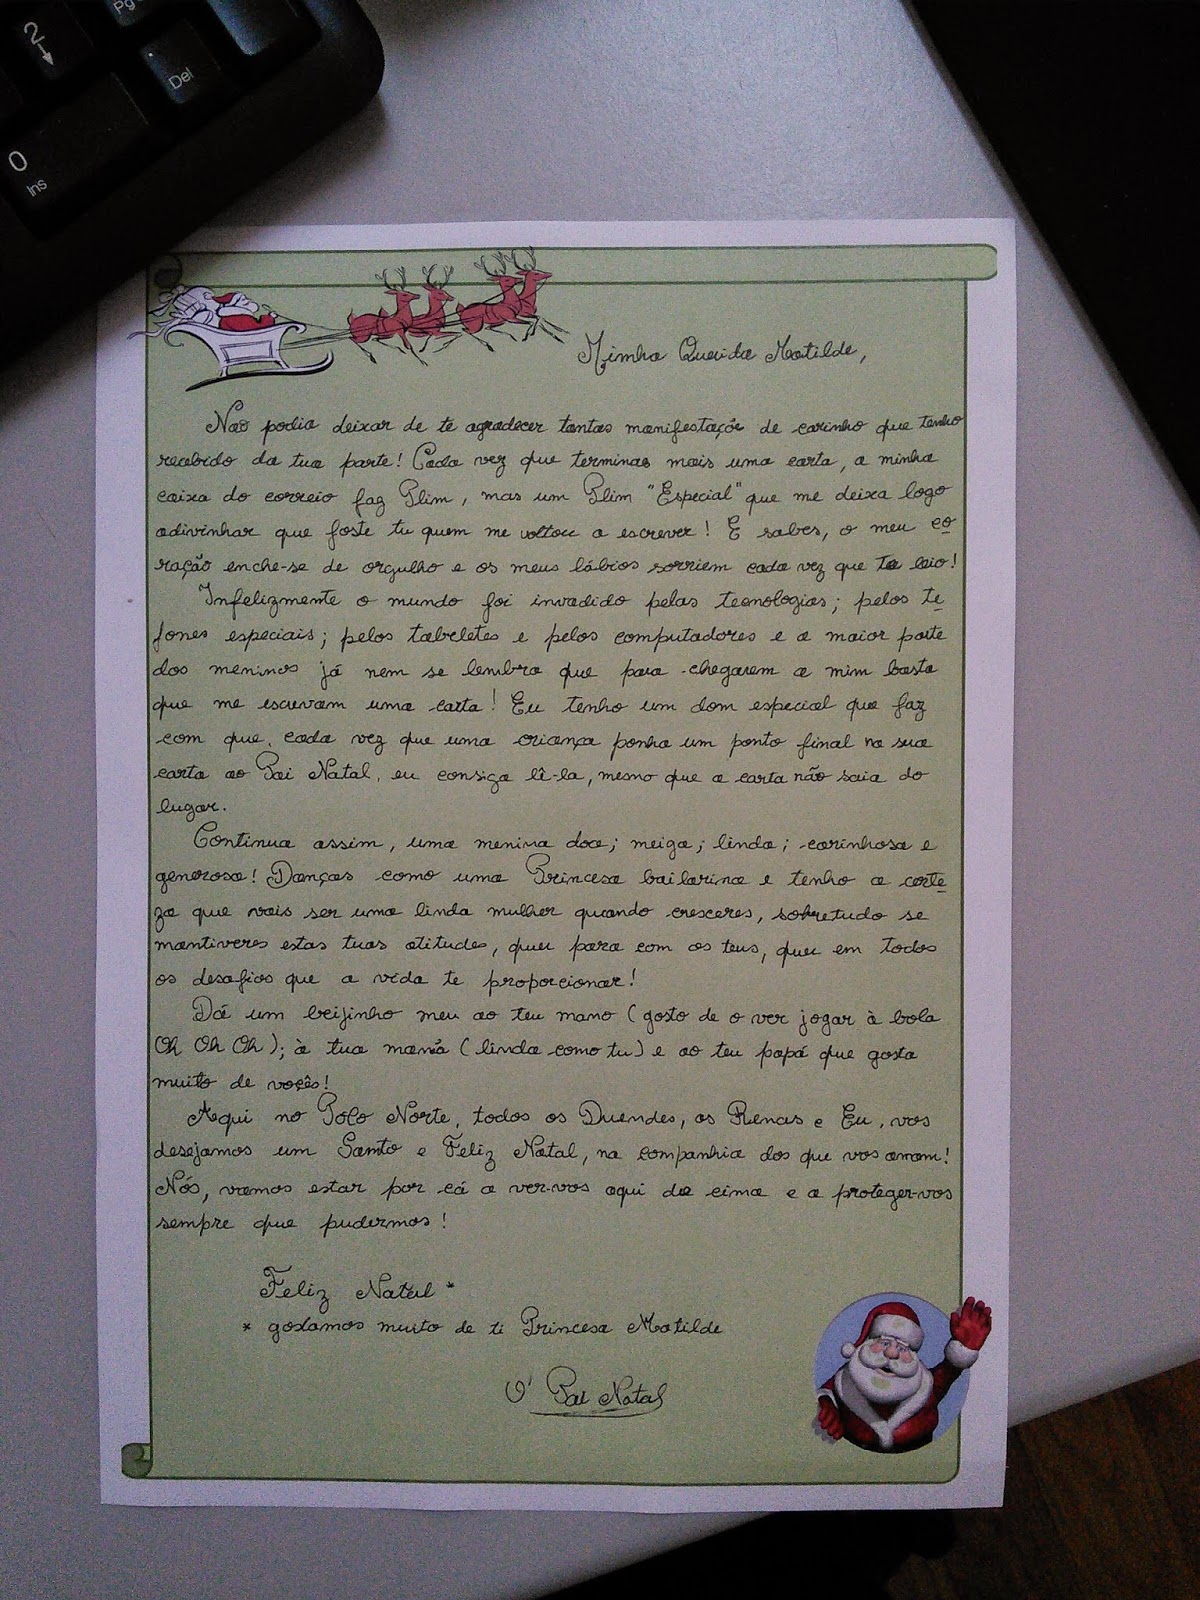 2
Pg
Del
0
Ins
Minha Querida Matilde,
Não podia deixar de te agradecer tantas manifestaçõe de carinho que tenho
recebido da tua parte! Cada vez que terminas mais uma carta, a minha
caixa do correio faz Plim, mas um Plim "Especial" que me deixa logo
adivinhar que foste tu quem me voltou a escrever! E sabes, o meu co
ração enche-se de orgulho e os meus lábios sorriem cada vez que te leio!
Infelizmente o mundo foi invadido pelas tecnologias; pelos te
fones especiais; pelos tabeletes e pelos computadores e a maior parte
dos meninos já nem se lembra que para chegarem a mim basta
que me escrevam uma carta! Eu tenho um dom especial que faz
com que, cada vez que uma criança ponha um ponto final na sua
carta ao Pai Natal, eu consiga lê-la, mesmo que a carta não saia do
lugar.
Continua assim, uma menina doce; meiga; linda; carinhosa e
generosa! Danças como uma Princesa bailarina e tenho a certe
za que vais ser uma linda mulher quando cresceres, sobretudo se
mantiveres estas tuas atitudes, quer para com os teus, quer em todos
os desafios que a vida te proporcionar!
Dá um beijinho meu ao teu mano (gosto de o ver jogar à bola
Oh Oh Oh); à tua mamã (linda como tu) e ao teu papá que gosta
muito de voçês!
Aqui no Polo Norte, todos os Duendes, as Renas e Eu, vos
desejamos um Santo e Feliz Natal, na companhia dos que vos amam!
Nós, vamos estar por cá a ver-vos aqui de cima e a proteger-vos
sempre que pudermos!
Feliz Natal *
* gostamos muito de ti Princesa Matilde
O' Pai Natal